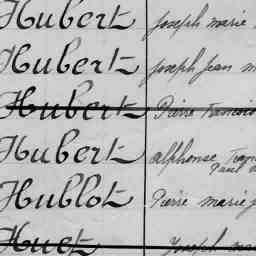 Hubert Joseph marie
Hubert Joseph Jean m
Hubert Pierre Francois
Hubert alphonse Franç
Paul
Hublot Pierre marie J
Huet Joseph